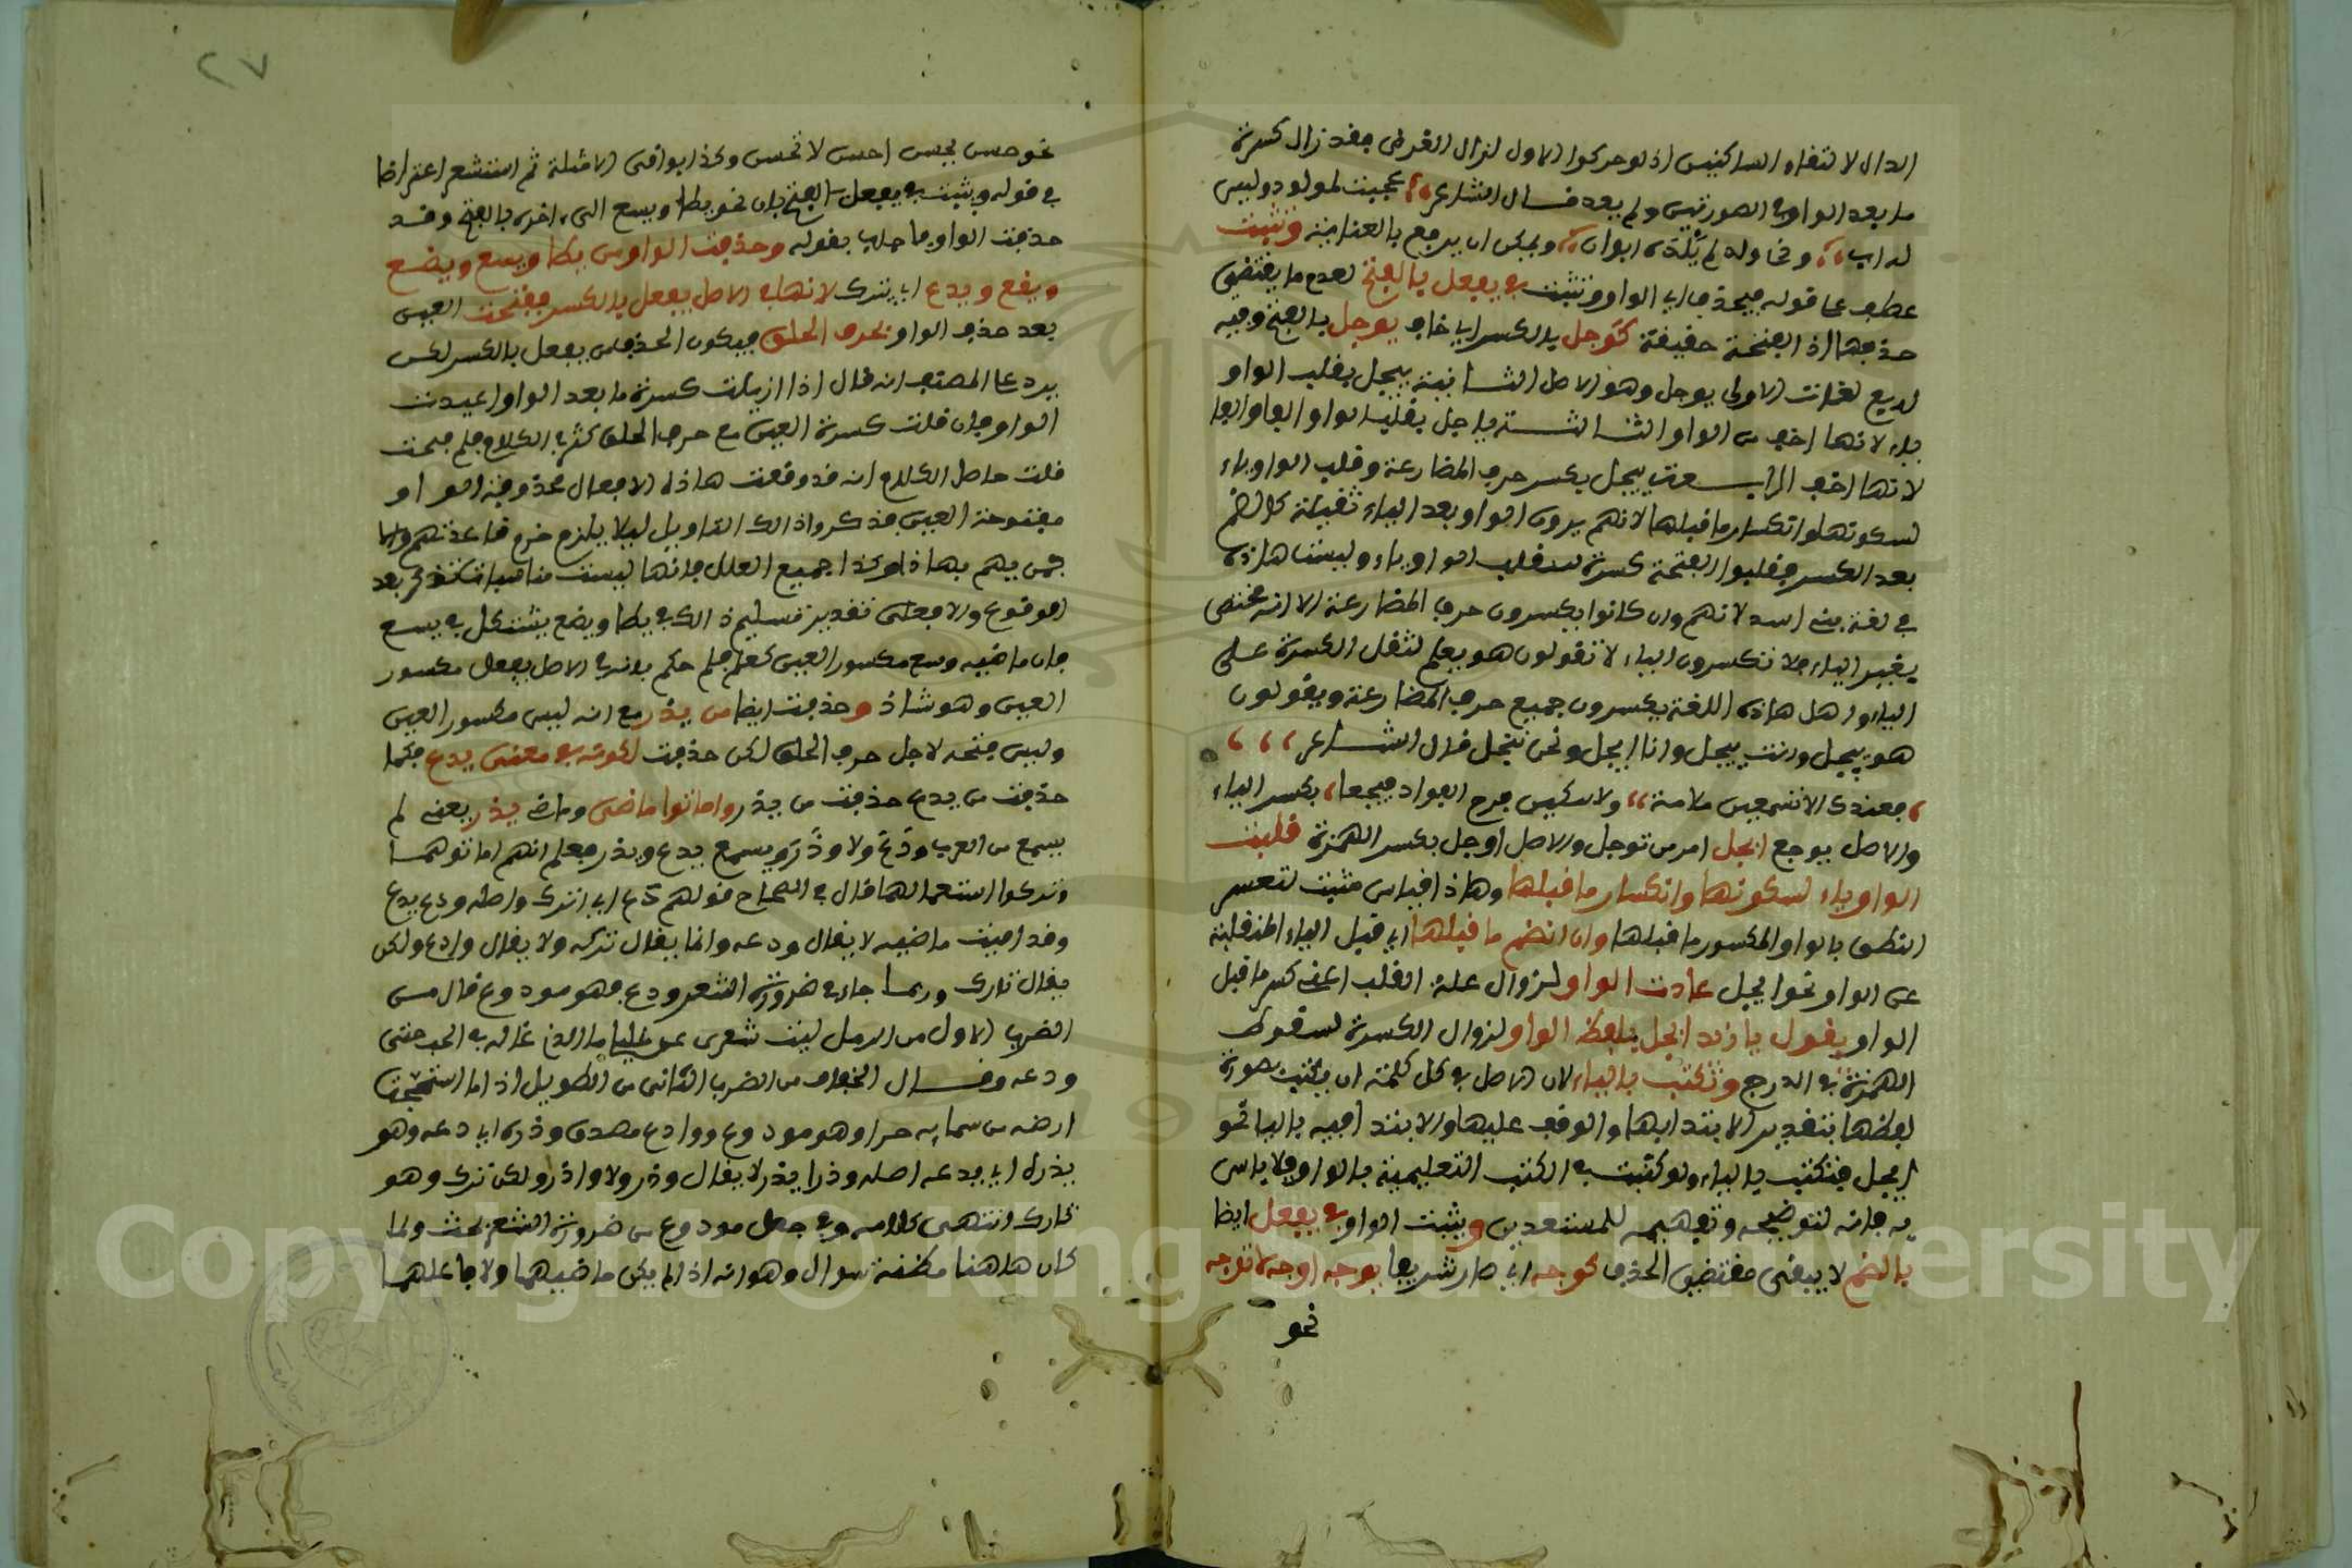 الدال لالتقاء الساكنين اذ لو حركوا الاول لزال الغرض فقد زال كسرة
ما بعد الواو في الصورتين ولم يعد قال الشاعر عجبت لمولود وليس
له اب وذي ولد لم يلده ابوان ويمكن ان يدفع بالعناية وتثبت
عطف على قوله فيحذف اي الواو وتثبت في يفعل بالفتح لعدم ما يقتضي
حذفها اذ الفتحة خفيفة كوجل بالكسر اي خاف يوجل بالفتح وفيه
اربع لغات الاولى يوجل وهو الاصل الثانية ييجل بقلب الواو
ياء لانها اخف من الواو الثالثة ياجل بقلب الواو الفا والفا
لانها اخف الرابعة ييجل بكسر حرف المضارعة وقلب الواو ياء
لسكونها وانكسار ما قبلها لانهم يرون الواو بعد الياء ثقيلة كالضم
بعد الكسر فقلبوا الفتحة كسرة لتقلب الواو ياء وليست هاذه
في لغة بني اسد لانهم وان كانوا يكسرون حرف المضارعة الا انه مختص
بغير الياء فلا تكسرون الياء لا تقولون هو يعلم لثقل الكسرة على
الياء واهل هاذه اللغة يكسرون جميع حرف المضارعة ويقولون
هو ييجل وانت تيجل وانا ايجل ونحن نيجل قال الشاعر
قعيدك ان لا تسمعين ملامة ولا تنكئين قرح الفواد فييجعا بكسر الياء
والاصل يوجع ايجل امر من توجل والاصل اوجل بكسر الهمزة قلبت
الواو ياء لسكونها وانكسار ما قبلها وهاذا قياس مثبت لتعسر
النطق بالواو المكسور ما قبلها وان انضم ما قبلها اي قبل الياء المنقلبة
عن الواو نحو ايجل عادت الواو لزوال علة القلب اعني كسر ما قبل
الواو يقول يا زيد ايجل بلفظ الواو لزوال الكسرة لسقوط
الهمزة في الدرج وتكتب بالياء لان الاصل في كل كلمة ان يكتب صورة
لفظها بتقدير الابتداء بها والوقف عليها والابتداء فيه بالياء نحو
ايجل فتكتب بالياء ولو كتبت في الكتب التعليمية بالواو فلا باس
به فانه لتوضيحه وتفهيمه للمستفدين ويثبت الواو في يفعل ايضا
بالضم لا يبقى مقتضي الحذف كوجه اي صار شريفا يوجه اوجه لا توجه
نحو
٢٧
نحو حسن يحسن احسن لا تحسن وكذا بواقي الامثلة ثم استشعر اعتراضا
في قوله ويثبت في يفعل بالفتح بان نحو يطأ ويسع الى اخره بالفتح وقد
حذفت الواو فاجاب بقوله وحذفت الواو من يطأ ويسع ويضع
ويقع ويدع اي يترك لانها في الاصل يفعل بالكسر ففتحت العين
بعد حذف الواو لحرف الحلق فيكون الحذف من يفعل بالكسر لكن
يرد على المصنف انه قال اذا ازيلت كسرة ما بعد الواو اعيدت
الواو فان قلت كسرة العين مع حرف الحلق كثر في الكلام فلم فتحت
قلت حاصل الكلام انه قد وقعت هاذه الافعال محذوفة الواو
مفتوحة العين فذكروا ذالك التاويل ليلا يلزم خرم قاعدتهم وانما
حمن بهم بهاذا وكذا جميع العلل فانها ليست مناسبات تذكر بعد
الوقوع والا فعلى تقدير تسليم ذالك في يطأ ويضع يشكل في يسع
فان ماضيه وسع مكسور العين كعلم فلم حكم بانه في الاصل يفعل مكسور
العين وهو شاذ وحذفت ايضا من يذر مع انه ليس مكسور العين
وليس فتحه لاجل حرف الحلق لكن حذفت لكونه في معنى يدع فكما
حذفت من يدع حذفت من يذر واماتوا ماضي وماضي يذر يعني لم
يسمع من العرب ودع ولا وذر ويسمع يدع ويذر فعلم انهم اماتوهما
وتركوا استعمالهما قال في الصحاح قولهم دع اي اترك واصله ودع يدع
وقد اميت ماضيه لا يقال ودعه وانما يقال تركه ولا يقال وادع ولكن
يقال تارك وربما جاء في ضرورة الشعر ودع فهو مودوع قال من
الضرب الاول من الرمل ليت شعري عن خليلي ما الذي غاله في الحب حتى
ودعه وقال الخفاف من الضرب الثاني من الطويل اذا ما استحمت
ارضه من سمايه جرا وهو مودوع ووادع مصدق وذره اي دعه وهو
يذره اي يدعه اصله وذر يذر لا يقال وذر ولا واذر ولكن ترك وهو
تارك انتهى كلامه وفي جعل مودوع من ضرورة الشعر بحث ولما
كان هاهنا مظنة سوال وهو انه اذا لم يكن ماضيهما ولا فاعلهما
Copyright © King Saud University